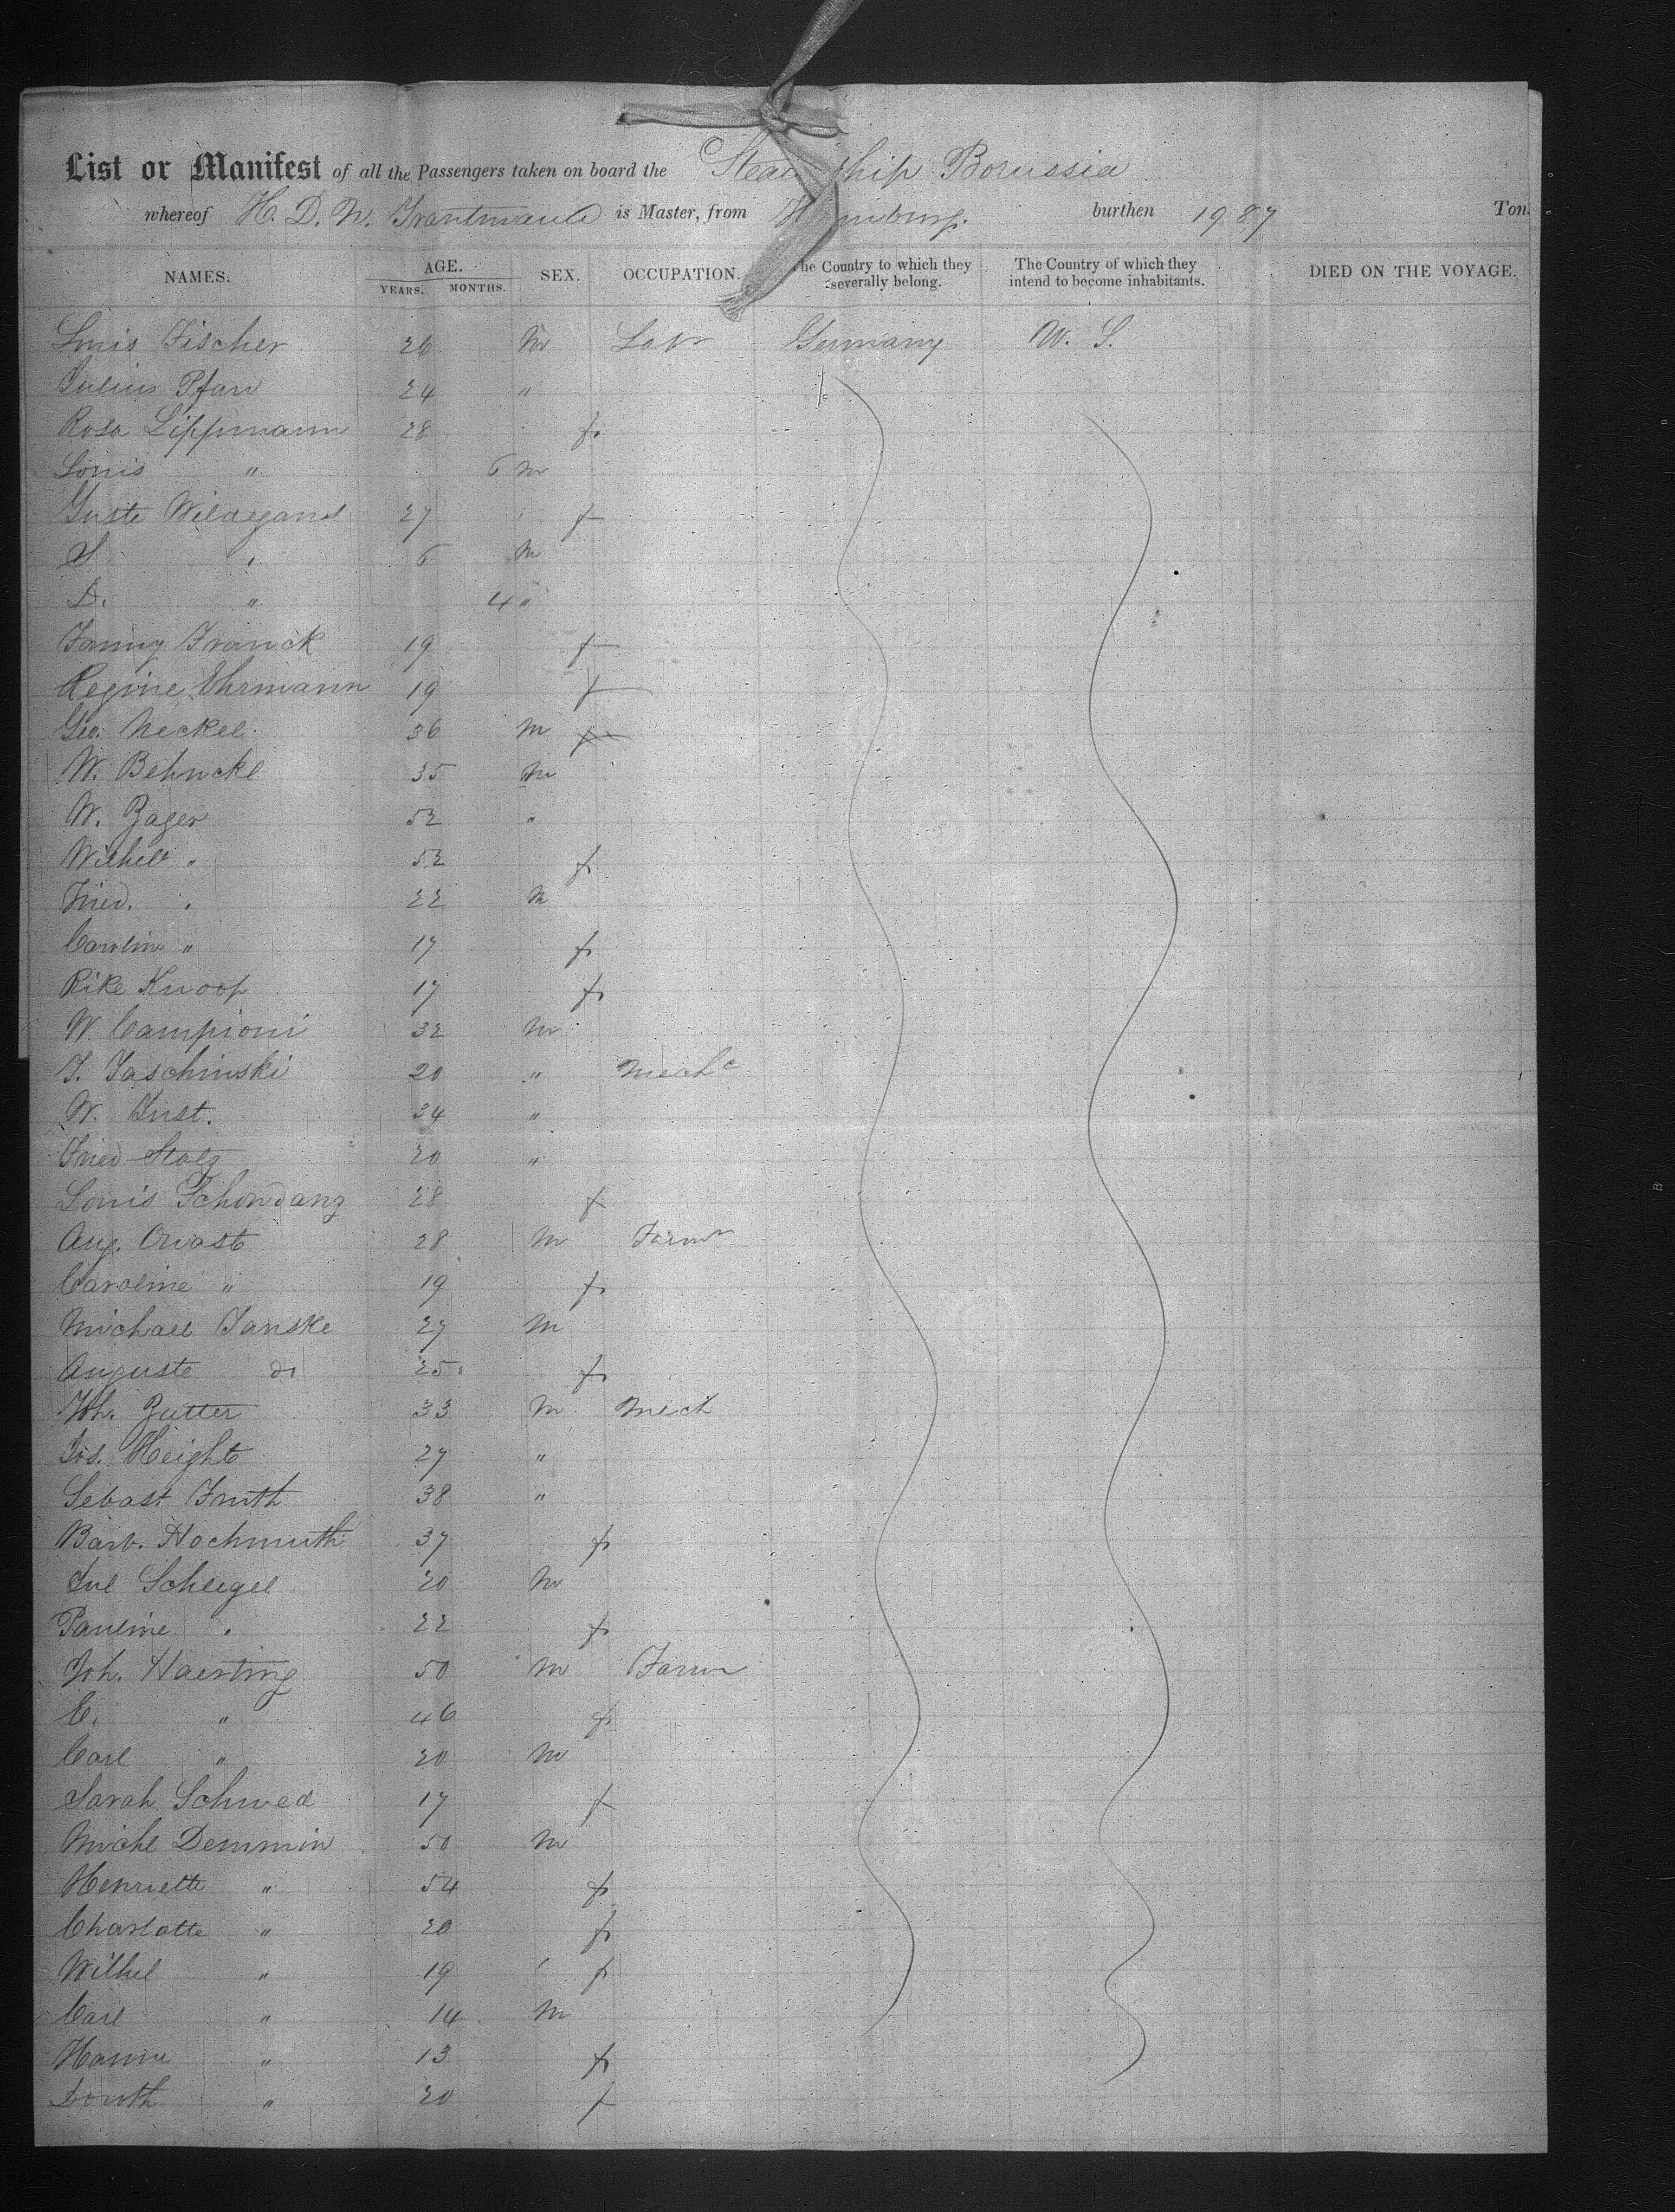 List or Manifest of all the Passengers taken on board the Steamship Borussia
whereof H. D. N. Trantmann is Master, from Hamburg. burthen 1987 Ton.
NAMES. AGE. YEARS. MONTHS. SEX. OCCUPATION. The Country to which they severally belong. The Country of which they intend to become inhabitants. DIED ON THE VOYAGE.
Louis Fischer 26 m Labr Germany U. S.
Julius Pfau 24 "
Rosa Lippmann 28 f
Louis " 6 m
Guste Wildegand 27 f
S " 6 m
D. " 4 "
Fanny Franck 19 f
Regine Ehrmann 19 f
Geo. Neckel 36 m
W. Behncke 35 m
W. Zager 52 "
Wilhele " 52 f
Fried. " 22 m
Carolin " 17 f
Rike Knoop 17 f
W. Campioni 32 m
J. Jaschinski 20 " Mechc
W. Just. 34 "
Fried Stolz 20 "
Louis Schondanz 28 f
Aug. 28 m Farmr
Caroline " 19 f
Michael Janske 27 m
Auguste do 25 f
Joh. Zutter 33 m Mech
Jos. Height 27 "
Sebast Fruth 38 "
Barb. Hochmuth 37 f
Jul Schlegel 20 m
Pauline " 22 f
Joh. Haerting 50 m Farmr
C. " 46 f
Carl " 20 m
Sarah Schwed 17 f
Michl Demmin 50 m
Henriette " 54 f
Charlotte " 20 f
Wilhel " 19 f
Carl " 14 m
Hanne " 13 f
Doroth " 20 f